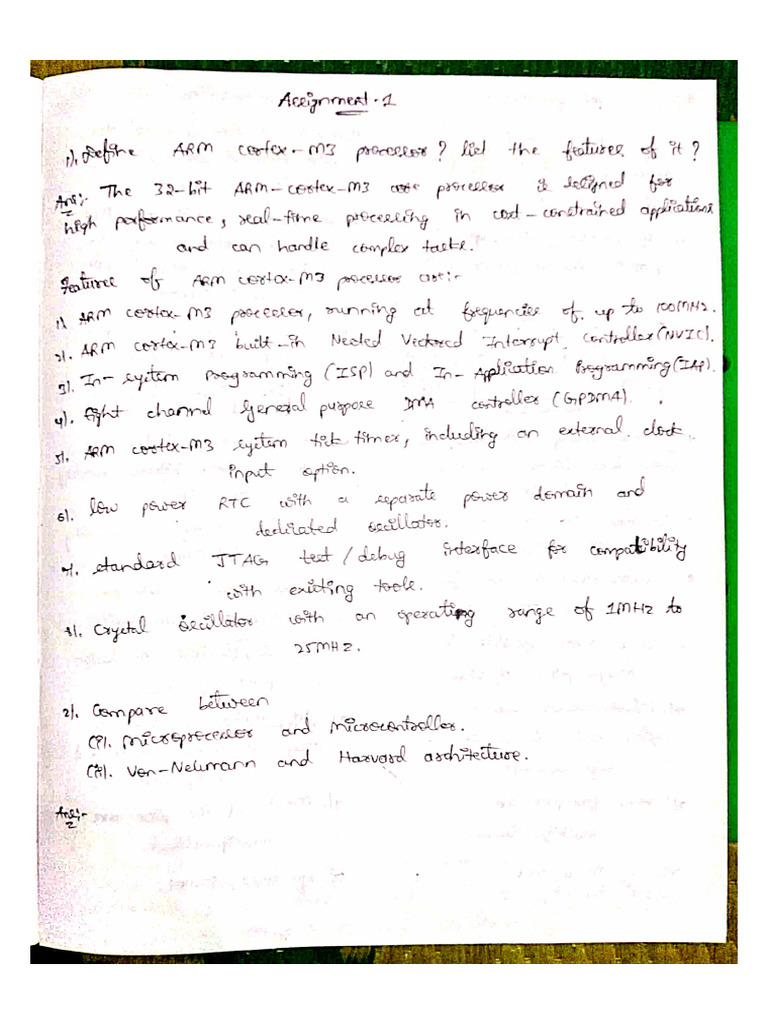 Assignment - 1
1). Define ARM cortex-M3 processor? list the features of it?
Ans:- The 32-bit ARM-cortex-M3 core processor is designed for
high performance, real-time processing in cost-constrained applications
and can handle complex tasks.
Features of ARM cortex-M3 processor are:-
1). ARM cortex-M3 processor, running at frequencies of up to 100MHz.
2). ARM cortex-M3 built-in Nested Vectored Interrupt Controller (NVIC).
3). In-system programming (ISP) and In-Application Programming (IAP).
4). Eight channel General purpose DMA controller (GPDMA).
5). ARM cortex-M3 system tick timer, including an external clock
input option.
6). low power RTC with a separate power domain and
dedicated oscillator.
7. standard JTAG test / debug interface for compatibility
with existing tools.
8). Crystal oscillator with an operating range of 1MHz to
25MHz.
2). Compare between
(i). Microprocessor and Microcontroller.
(ii). Von-Neumann and Harvard architecture.
Ans:-